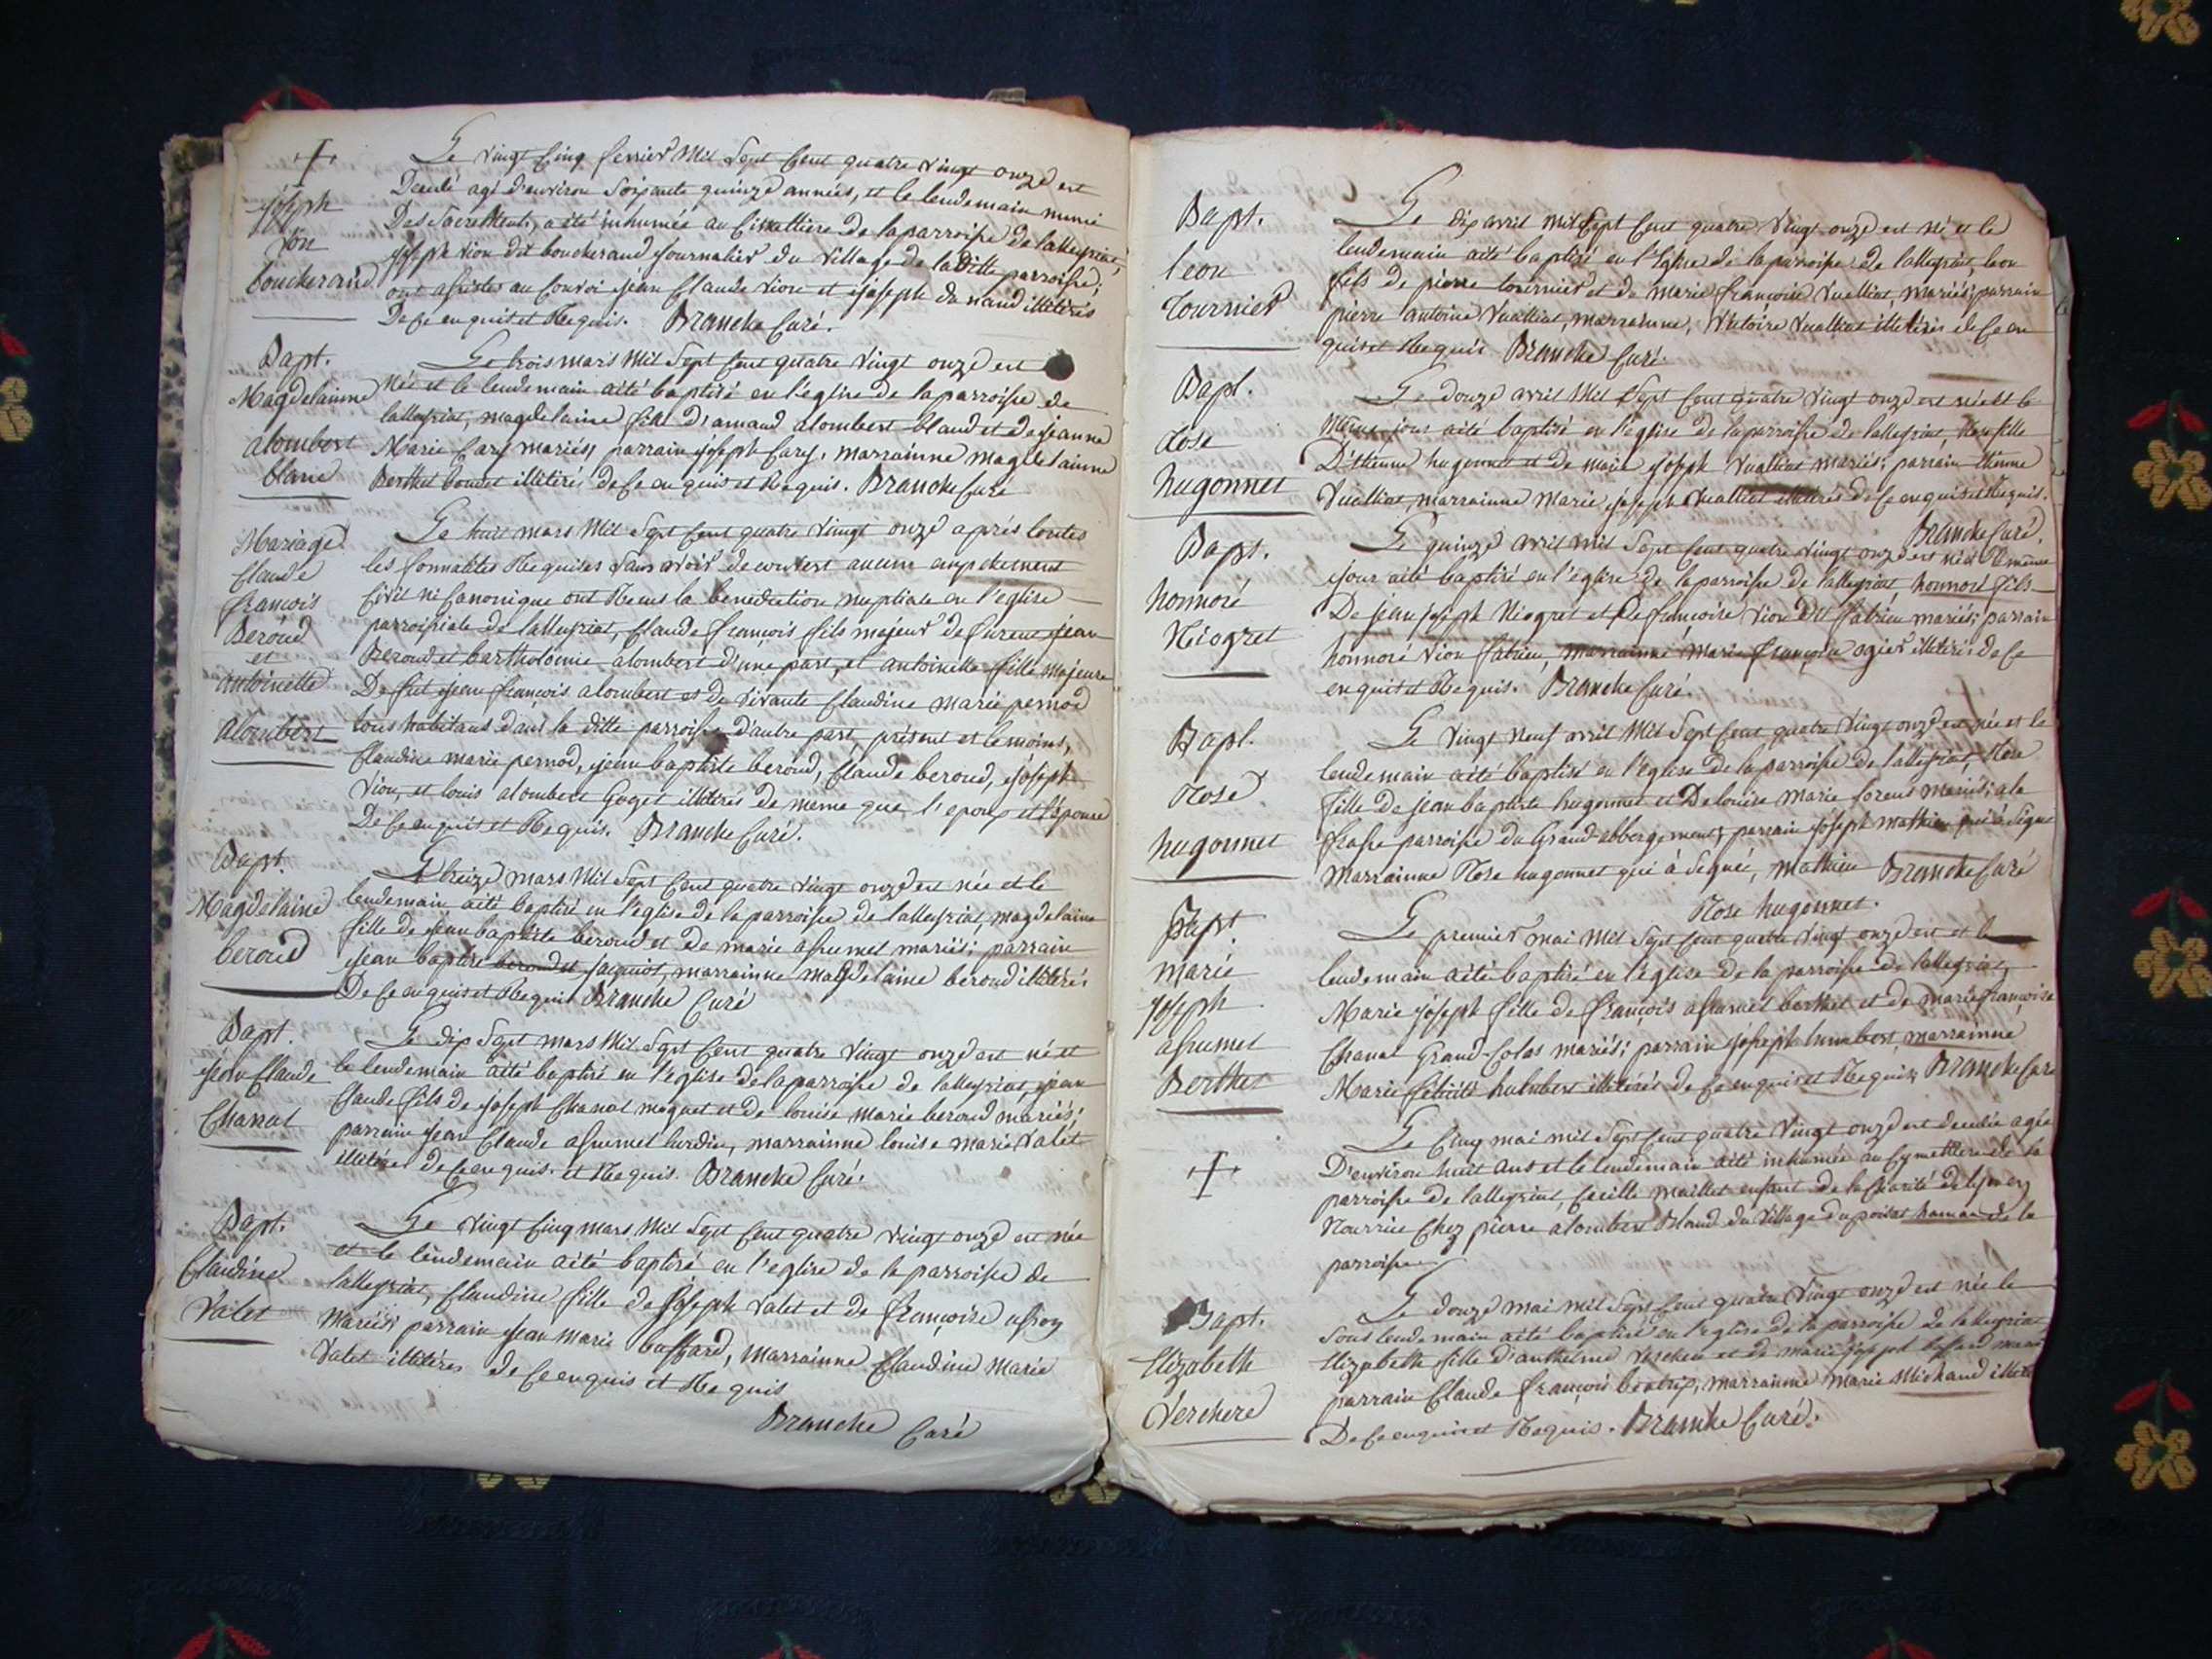 +
joseph
vion
bouckerand
Le vingt cinq fevrier mil sept cent quatre vingt onze est
Decedé agé d'environ soixante quinze années, et le lendemain muni
Des sacrements, a été inhumée au cimettiere de la parroisse de lalleyriat,
joseph vion dit bouckerand journalier du village de la ditte parroisse;
ont assistés au convoi jean claude vion et joseph du nand illitérés
De ce enquis et Requis. Branche Curé.
Bapt.
Magdelainne
alombert
blanc
Le trois mars mil sept cent quatre vingt onze est
née et le lendemain a été baptisé en l'église de la parroisse de
lalleyriat, magdelaine fille d'amand alombert blanc et de jeanne
Marie Cary mariés, parrain joseph Cary, marrainne magdelainne
Berthet boudet illitérés de ce enquis et Requis. Branche Curé
Mariage
Claude
françois
Beroud
et
antoinette
Alombert
Le huit mars mil sept cent quatre vingt onze après toutes
les formalités Requises sans avoir decouvert aucun empechement
Civil ni Canonique ont Recus la benediction nuptiale en l'eglise
parroissiale de lalleyriat, Claude françois fils majeur de jean
Beroud et bartholomie alombert d'une part, et antoinette fille majeure
De fut jean françois alombert et de vivante Claudine marie pernod
tous habitans dans la ditte parroisse d'autre part, présent et temoins,
Claudine marie pernod, jean baptiste beroud, Claude beroud, joseph
vion, et louis alombert Goget illitérés de meme que l'epoux et l'épouse
De ce enquis et Requis. Branche Curé.
Bapt.
Magdelaine
beroud
Le treize mars mil sept cent quatre vingt onze est née et le
lendemain a été baptisé en l'eglise de la parroisse de lalleyriat, magdelaine
fille de jean baptiste beroud et de marie assumet mariés; parrain
jean baptiste beroud et jacquiot, marrainne magdelaine beroud illitérés
De ce enquis et Requis Branche Curé
Bapt.
jean Claude
Chanat
Le dix sept mars mil sept cent quatre vingt onze est né et
le lendemain a été baptisé en l'eglise de la parroisse de lalleyriat, jean
Claude fils de joseph Chanat moquet et de louise marie beroud mariés;
parrain jean Claude assumet hurdin, marrainne louise marie valet
illitérés de ce enquis et Requis. Branche Curé.
Bapt.
Claudine
Valet
Le vingt cinq mars mil sept cent quatre vingt onze est née
et le lendemain a été baptisé en l'eglise de la parroisse de
lalleyriat, Claudine fille de joseph valet et de françoise
mariés; parrain jean marie buffard, marrainne Claudine marie
Valet illitérés de ce enquis et Requis
Branche Curé
Bapt.
leon
Tournier
Le dix avril mil sept cent quatre vingt onze est né et le
lendemain a été baptisé en l'Eglise de la parroisse de lalleyriat, leon
fils de pierre tournier et de marie françoise vuaillat, mariés; parrain
pierre antoine vuaillat, marrainne, victoire vuaillat illitérés de ce en
quis et Requis Branche Curé.
Bapt.
Rose
hugonnet
Le douze avril mil sept cent quatre vingt onze est née et le
Même jour a été baptisé en l'eglise de la parroisse de lalleyriat, Rose fille
D'étienne hugonnet et de marie joseph vuaillat mariés; parrain étienne
Vuaillat, marrainne marie joseph vuaillat illitérés de ce enquis et Requis.
Branche Curé.
Bapt.
honnoré
Niogret
Le quinze avril mil sept cent quatre vingt onze est né et le même
jour a été baptisé en l'église de la parroisse de lalleyriat, honnoré fils
De jean joseph Niogret et de françoise vion dit fabrien mariés; parrain
honnoré vion fabrien, marrainne marie françoise ogier illitérés de ce
enquis et Requis. Branche Curé.
Bapt.
Rose
hugonnet
Le vingt neuf avril mil sept cent quatre vingt onze est née et le
lendemain a été baptisé en l'eglise de la parroisse de lalleyriat, Rose
fille de jean baptiste hugonnet et de louise marie mariés; a la
parroisse du Grand abbergement; parrain joseph mathieu qui à signé
Marrainne Rose hugonnet qui à signé, mathieu Branche Curé
Rose hugonnet.
Bapt.
marie
joseph
assumet
Berthet
Le premier mai mil sept cent quatre vingt onze est et le
lendemain a été baptisé en l'église de la parroisse de lalleyriat,
Marie joseph fille de françois assumet berthet et de marie françoise
Chanat Grand-Colas mariés; parrain joseph humbert, marrainne
Marie félicité humbert illitérés de ce enquis et Requis Branche Curé
+
Le Cinq mai mil sept cent quatre vingt onze est decedée agée
D'environ huit ans et le lendemain a été inhumée au cymettiere de la
parroisse de lalleyriat, Cecille maillet enfant de la Charité de lyon en
Nourrice Chez pierre alombert bland du village du poizat hameau de la
parroisse
Bapt.
Elizabeth
Verchere
Le douze mai mil sept cent quatre vingt onze est née le
Sous lendemain a été baptisé en l'eglise de la parroisse de lalleyriat
Elizabeth fille d'anthelme verchere et de marie joseph
parrain Claude françois beatrix, marrainne marie michaud
De ce enquis et Requis. Branche Curé.